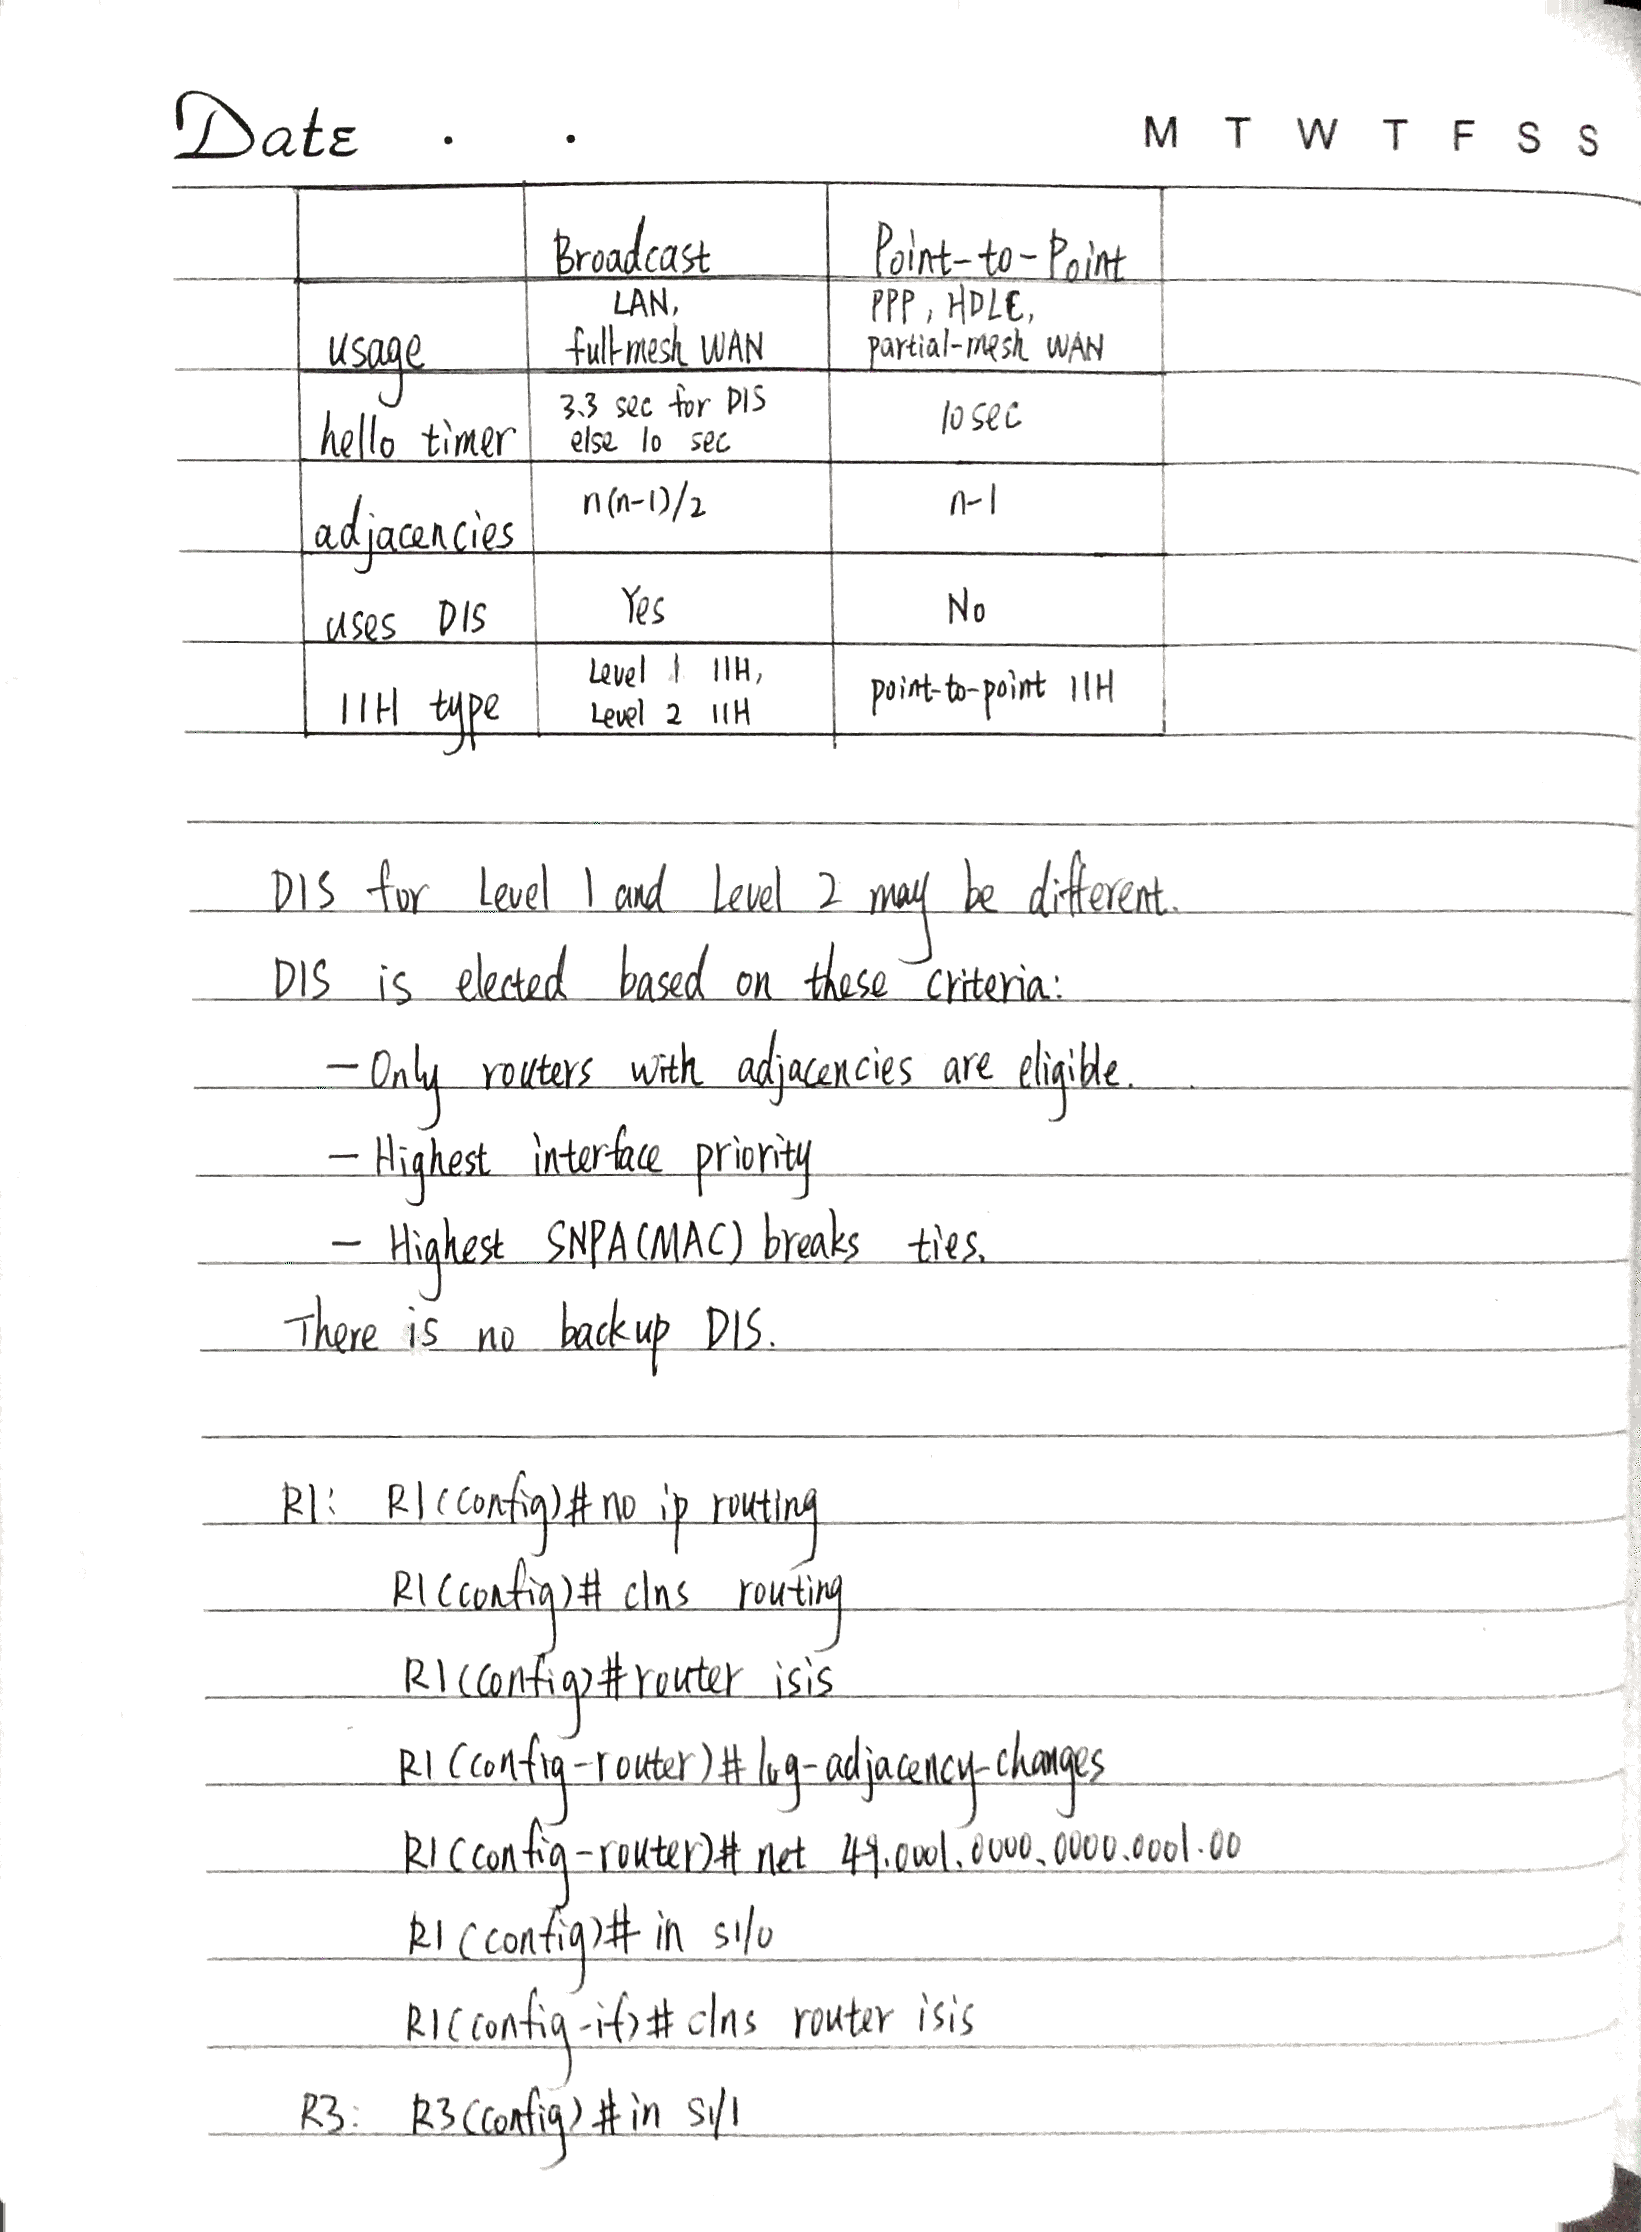 Date . .
M T W T F S S
Broadcast Point-to-Point
usage LAN, full-mesh WAN PPP, HDLC, partial-mesh WAN
hello timer 3.3 sec for DIS else 10 sec 10 sec
adjacencies n(n-1)/2 n-1
uses DIS Yes No
IIH type Level 1 IIH, Level 2 IIH point-to-point IIH
DIS for Level 1 and Level 2 may be different.
DIS is elected based on these criteria:
– Only routers with adjacencies are eligible.
– Highest interface priority
– Highest SNPA(MAC) breaks ties.
There is no backup DIS.
R1: R1(config)# no ip routing
R1(config)# clns routing
R1(config)# router isis
R1(config-router)# log-adjacency-changes
R1(config-router)# net 49.0001.0000.0000.0001.00
R1(config)# in s1/0
R1(config-if)# clns router isis
R3: R3(config)# in s1/1